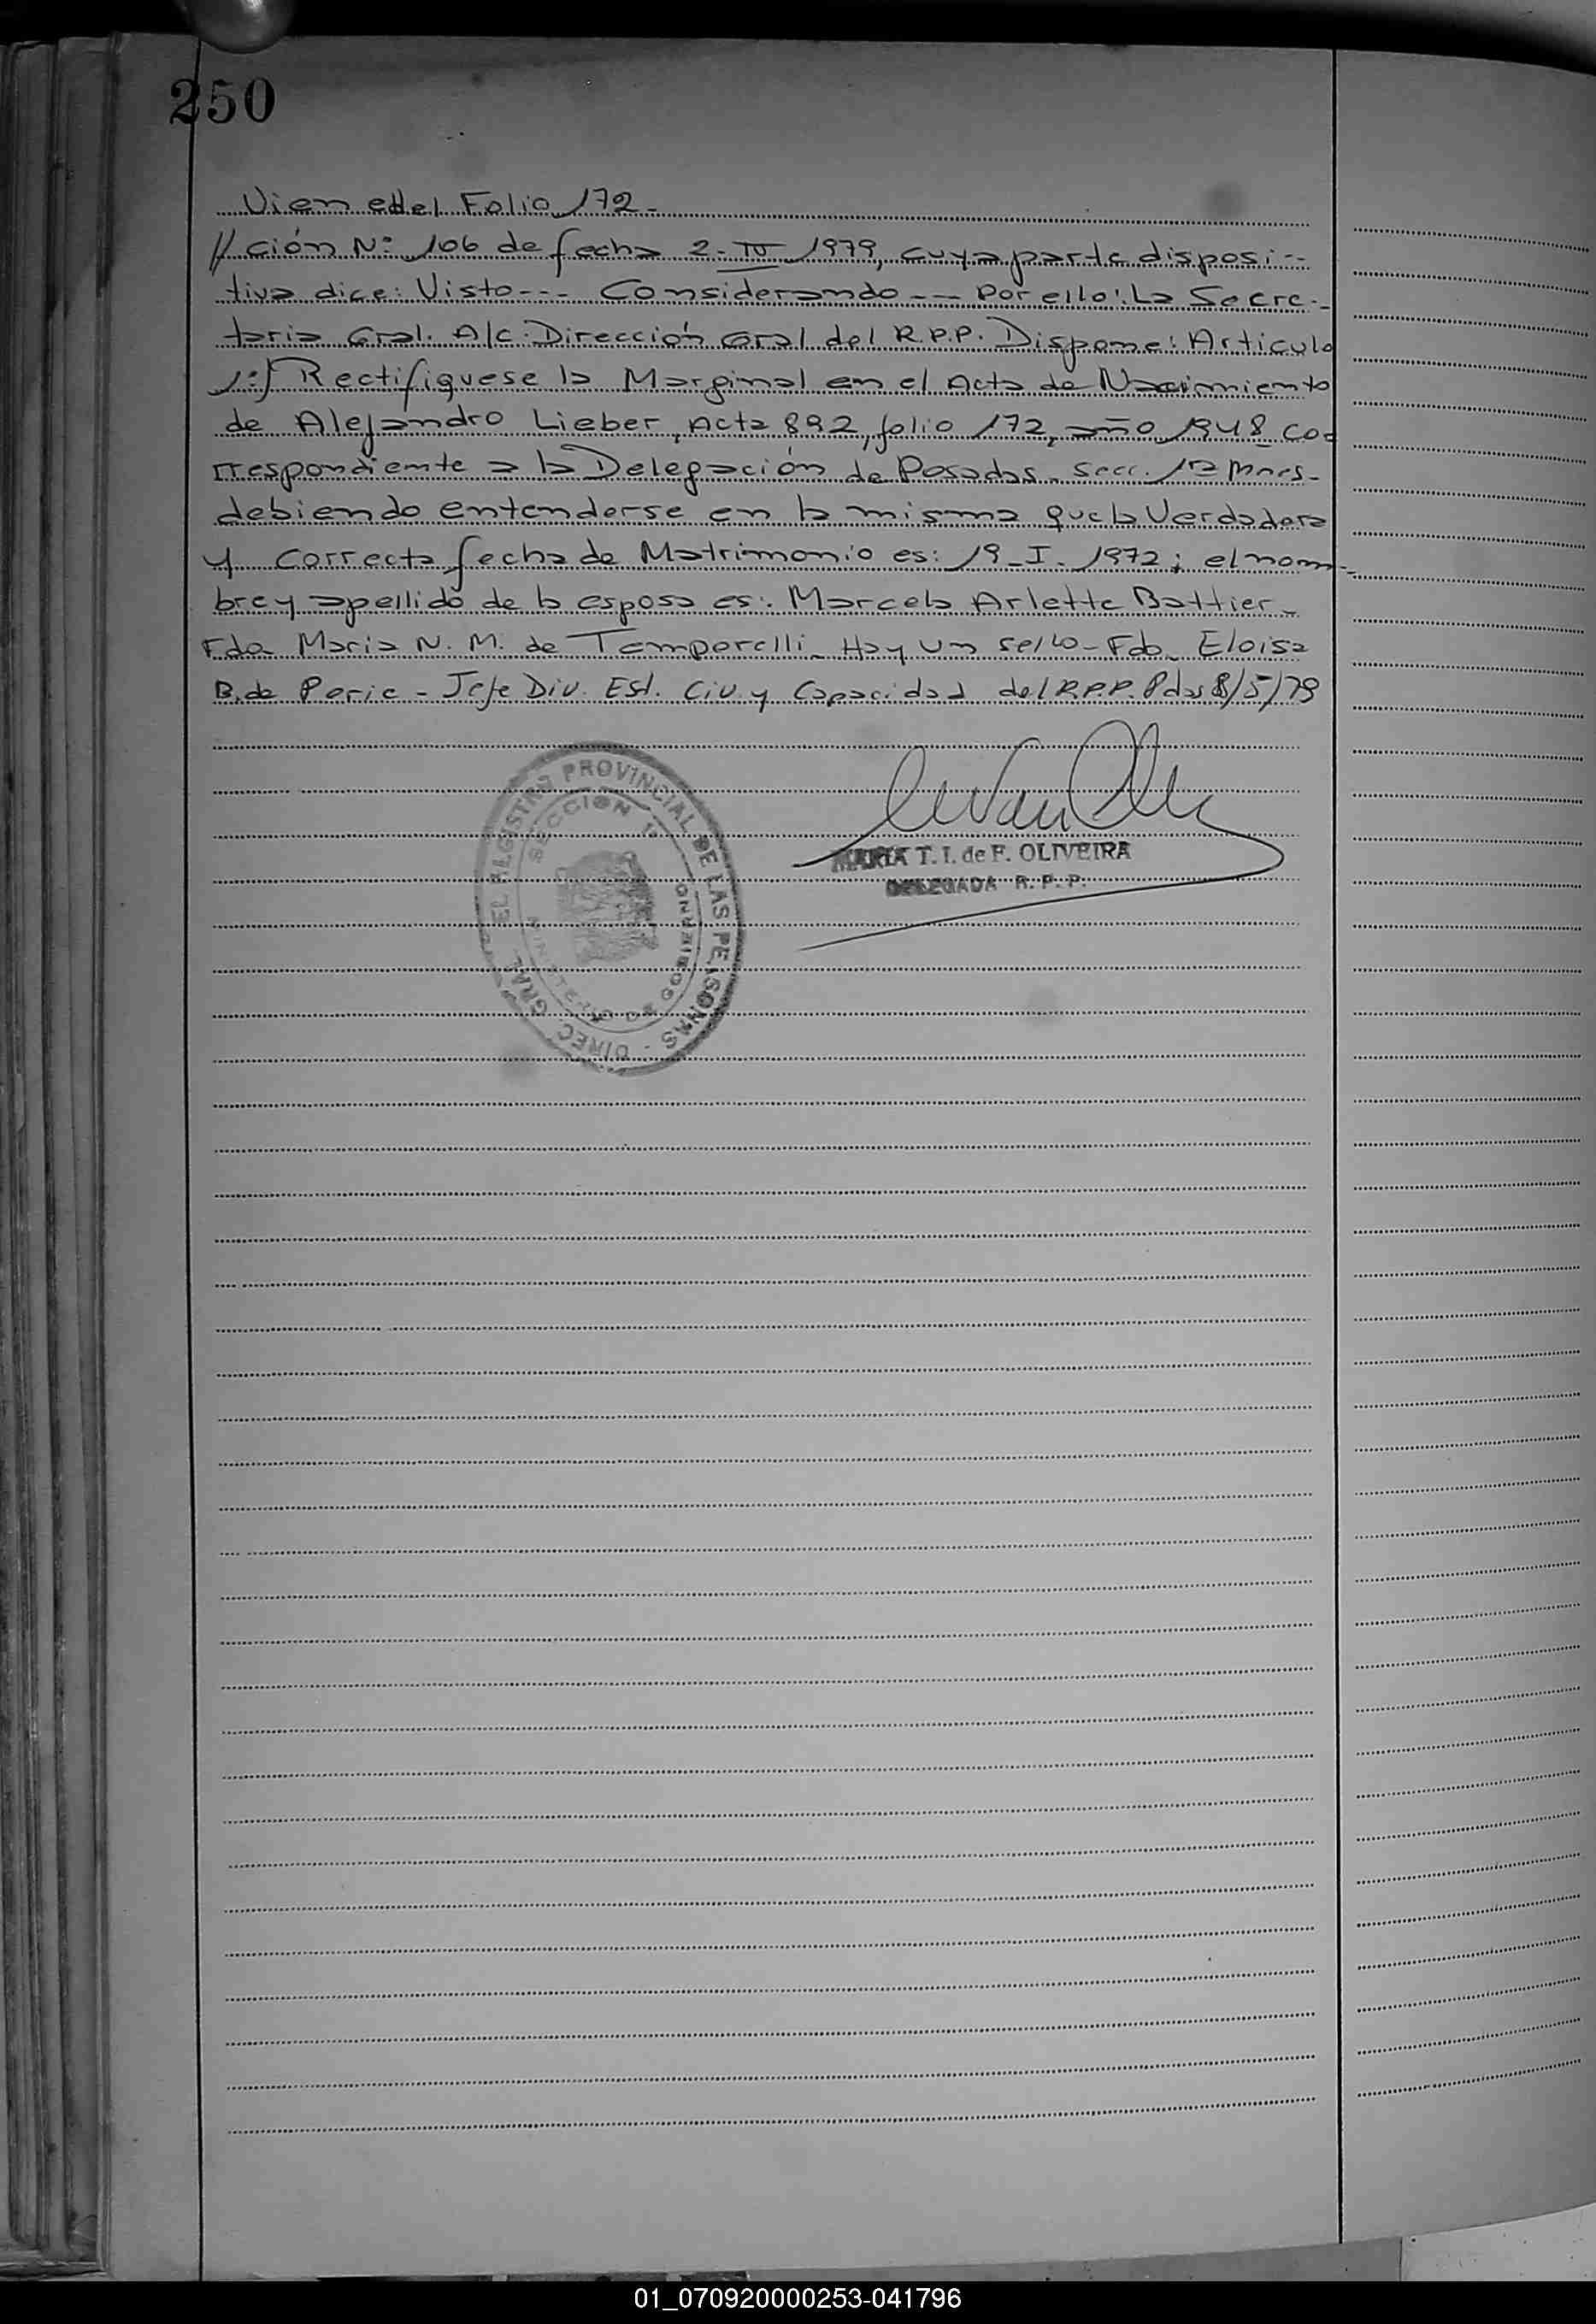 250
Viene del Folio 172-
//ción N: 106 de fecha 2-IV-1979, cuya parte disposi-
tiva dice: Visto--- Considerando--- Por ello: La Secre-
taria Gral. A/c. Dirección Gral del R.P.P. Dispone: Articulo
1:) Rectifiquese la Marginal en el Acta de Nacimiento
de Alejandro Lieber, Acta 892, folio 172, año 1948 co-
rrespondiente a la Delegación de Posadas- Secc. 1ra Mnes-
debiendo entenderse en la misma que la Verdadera
y correcta fecha de Matrimonio es: 19-I-1972; el nom-
bre y apellido de la esposa es: Marcela Arlette Battier-
Fdo. Maria N. M. de Temporelli- Hay un sello- Fdo- Eloisa
B. de Peric - Jefe Div. Est. Civ. y Capacidad del R.P.P. Pdas 8/5/79
MARIA T. I. de F. OLIVEIRA
DELEGADA R. P. P.
PROVINCIAL DE LAS PERSONAS - DIREC. GRAL.
SECCION 1ª
MINISTERIO DE GOBIERNO
01_070920000253-041796